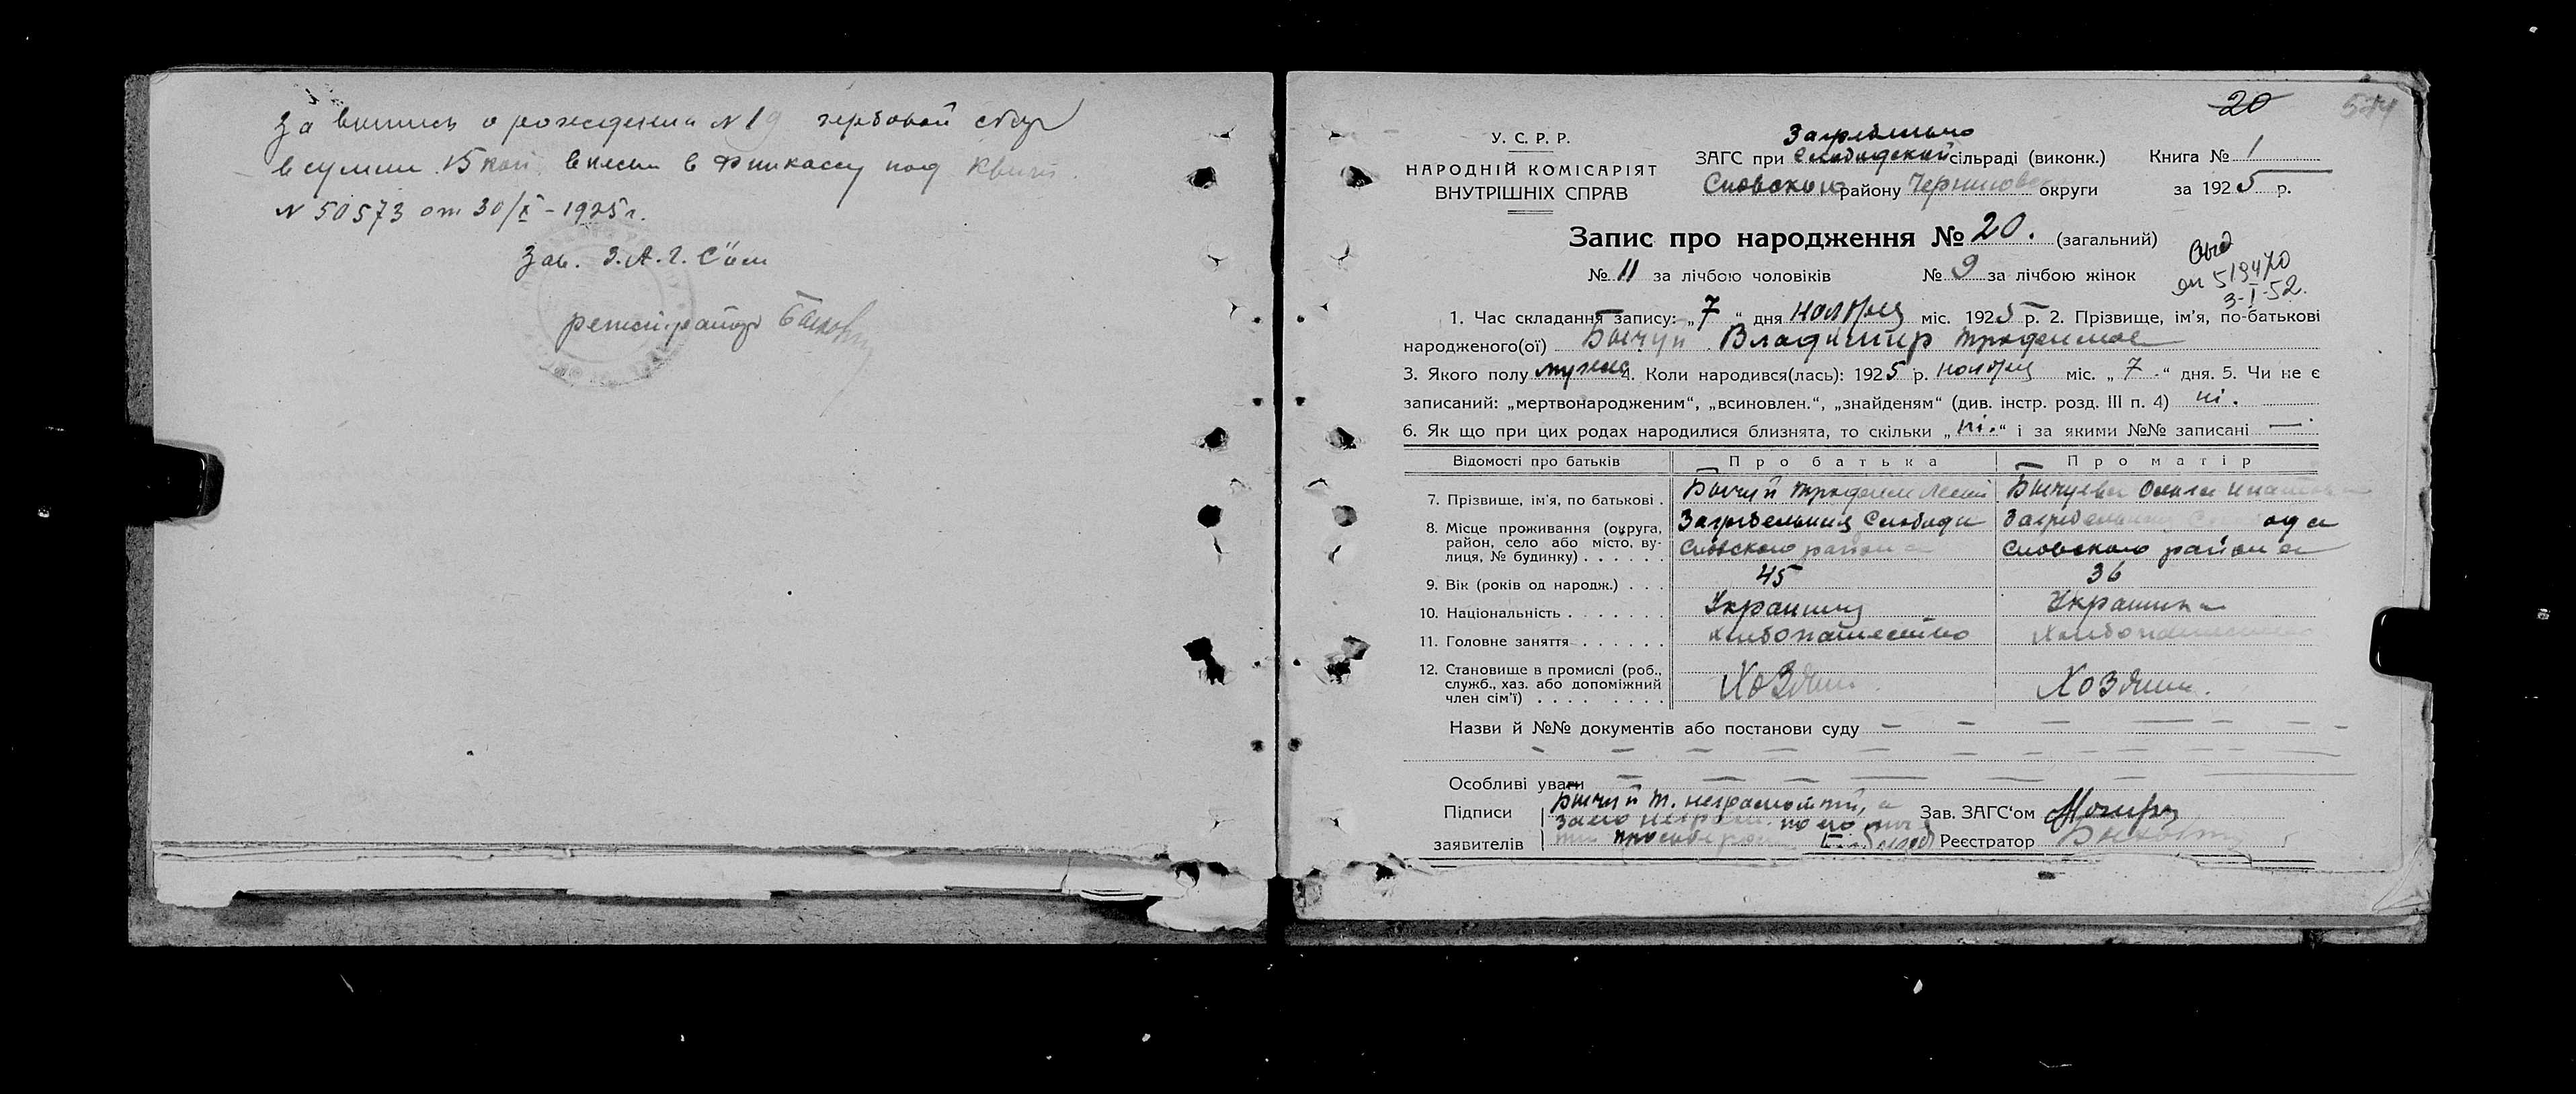 За выпись о рождении N 19 гербовой сбор
в сумме 15 коп. внесен в Финкассу под квит.
N 50573 от 30/X - 1925 г.
Зав. З.А.Г.С'ом
регистратор
20
У. С. Р. Р.
НАРОДНІЙ КОМІСАРІЯТ
ВНУТРІШНІХ СПРАВ
ЗАГС при Слободской сільраді (виконк.) Книга № 1
Сновского району Черниговской округи за 1925 р.
Запис про народження № 20. (загальний)
№ 11 за лічбою чоловіків № 9 за лічбою жінок
Выд
519470
3-I-52.
1. Час складання запису: „7“ дня ноября міс. 1925 р. 2. Прізвище, ім'я, по-батькові
народженого(ої) Бычуй Владимир Трофимов
3. Якого полу мужск 4. Коли народився(лась): 1925 р. ноября міс. „7“ дня. 5. Чи не є
записаний: „мертвонародженим“, „всиновлен.“, „знайденям“ (див. інстр. розд. III п. 4) ні.
6. Як що при цих родах народилися близнята, то скільки „ні.“ і за якими №№ записані —
Відомості про батьків Про батька Про матір
7. Прізвище, ім'я, по батькові . Бычуй Трофим Бычуева
8. Місце проживання (округа,
район, село або місто, ву-
лиця, № будинку) . . . . . .
Загребельная Слобода Загребельная Слобода
Сновского района Сновского района
9. Вік (років од народж.) . . . 45 36
10. Національність . . . . . . . Украинец Украинка
11. Головне заняття . . . . . . хлебопашество хлебопашество
12. Становище в промислі (роб.,
служб., хаз. або допоміжний
член сім'ї) . . . . . . . .
Хозяин. Хозяин.
Назви й №№ документів або постанови суду — — — —
Особливі уваги — — — —
Підписи Бычуй Т. неграмотный, а Зав. ЗАГС'ом
за его неграм. по его
заявителів просьбе Реєстратор